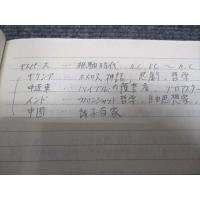 ヤスパース … 枢軸時代 B.C, 8C 〜 B.C
ギリシア … ホメロス 神話, 悲劇, 哲学
中近東 … バイブルの預言者, ゾロアスター
インド … ウパニシャッド哲学, 自由思想家,
中国 … 諸子百家